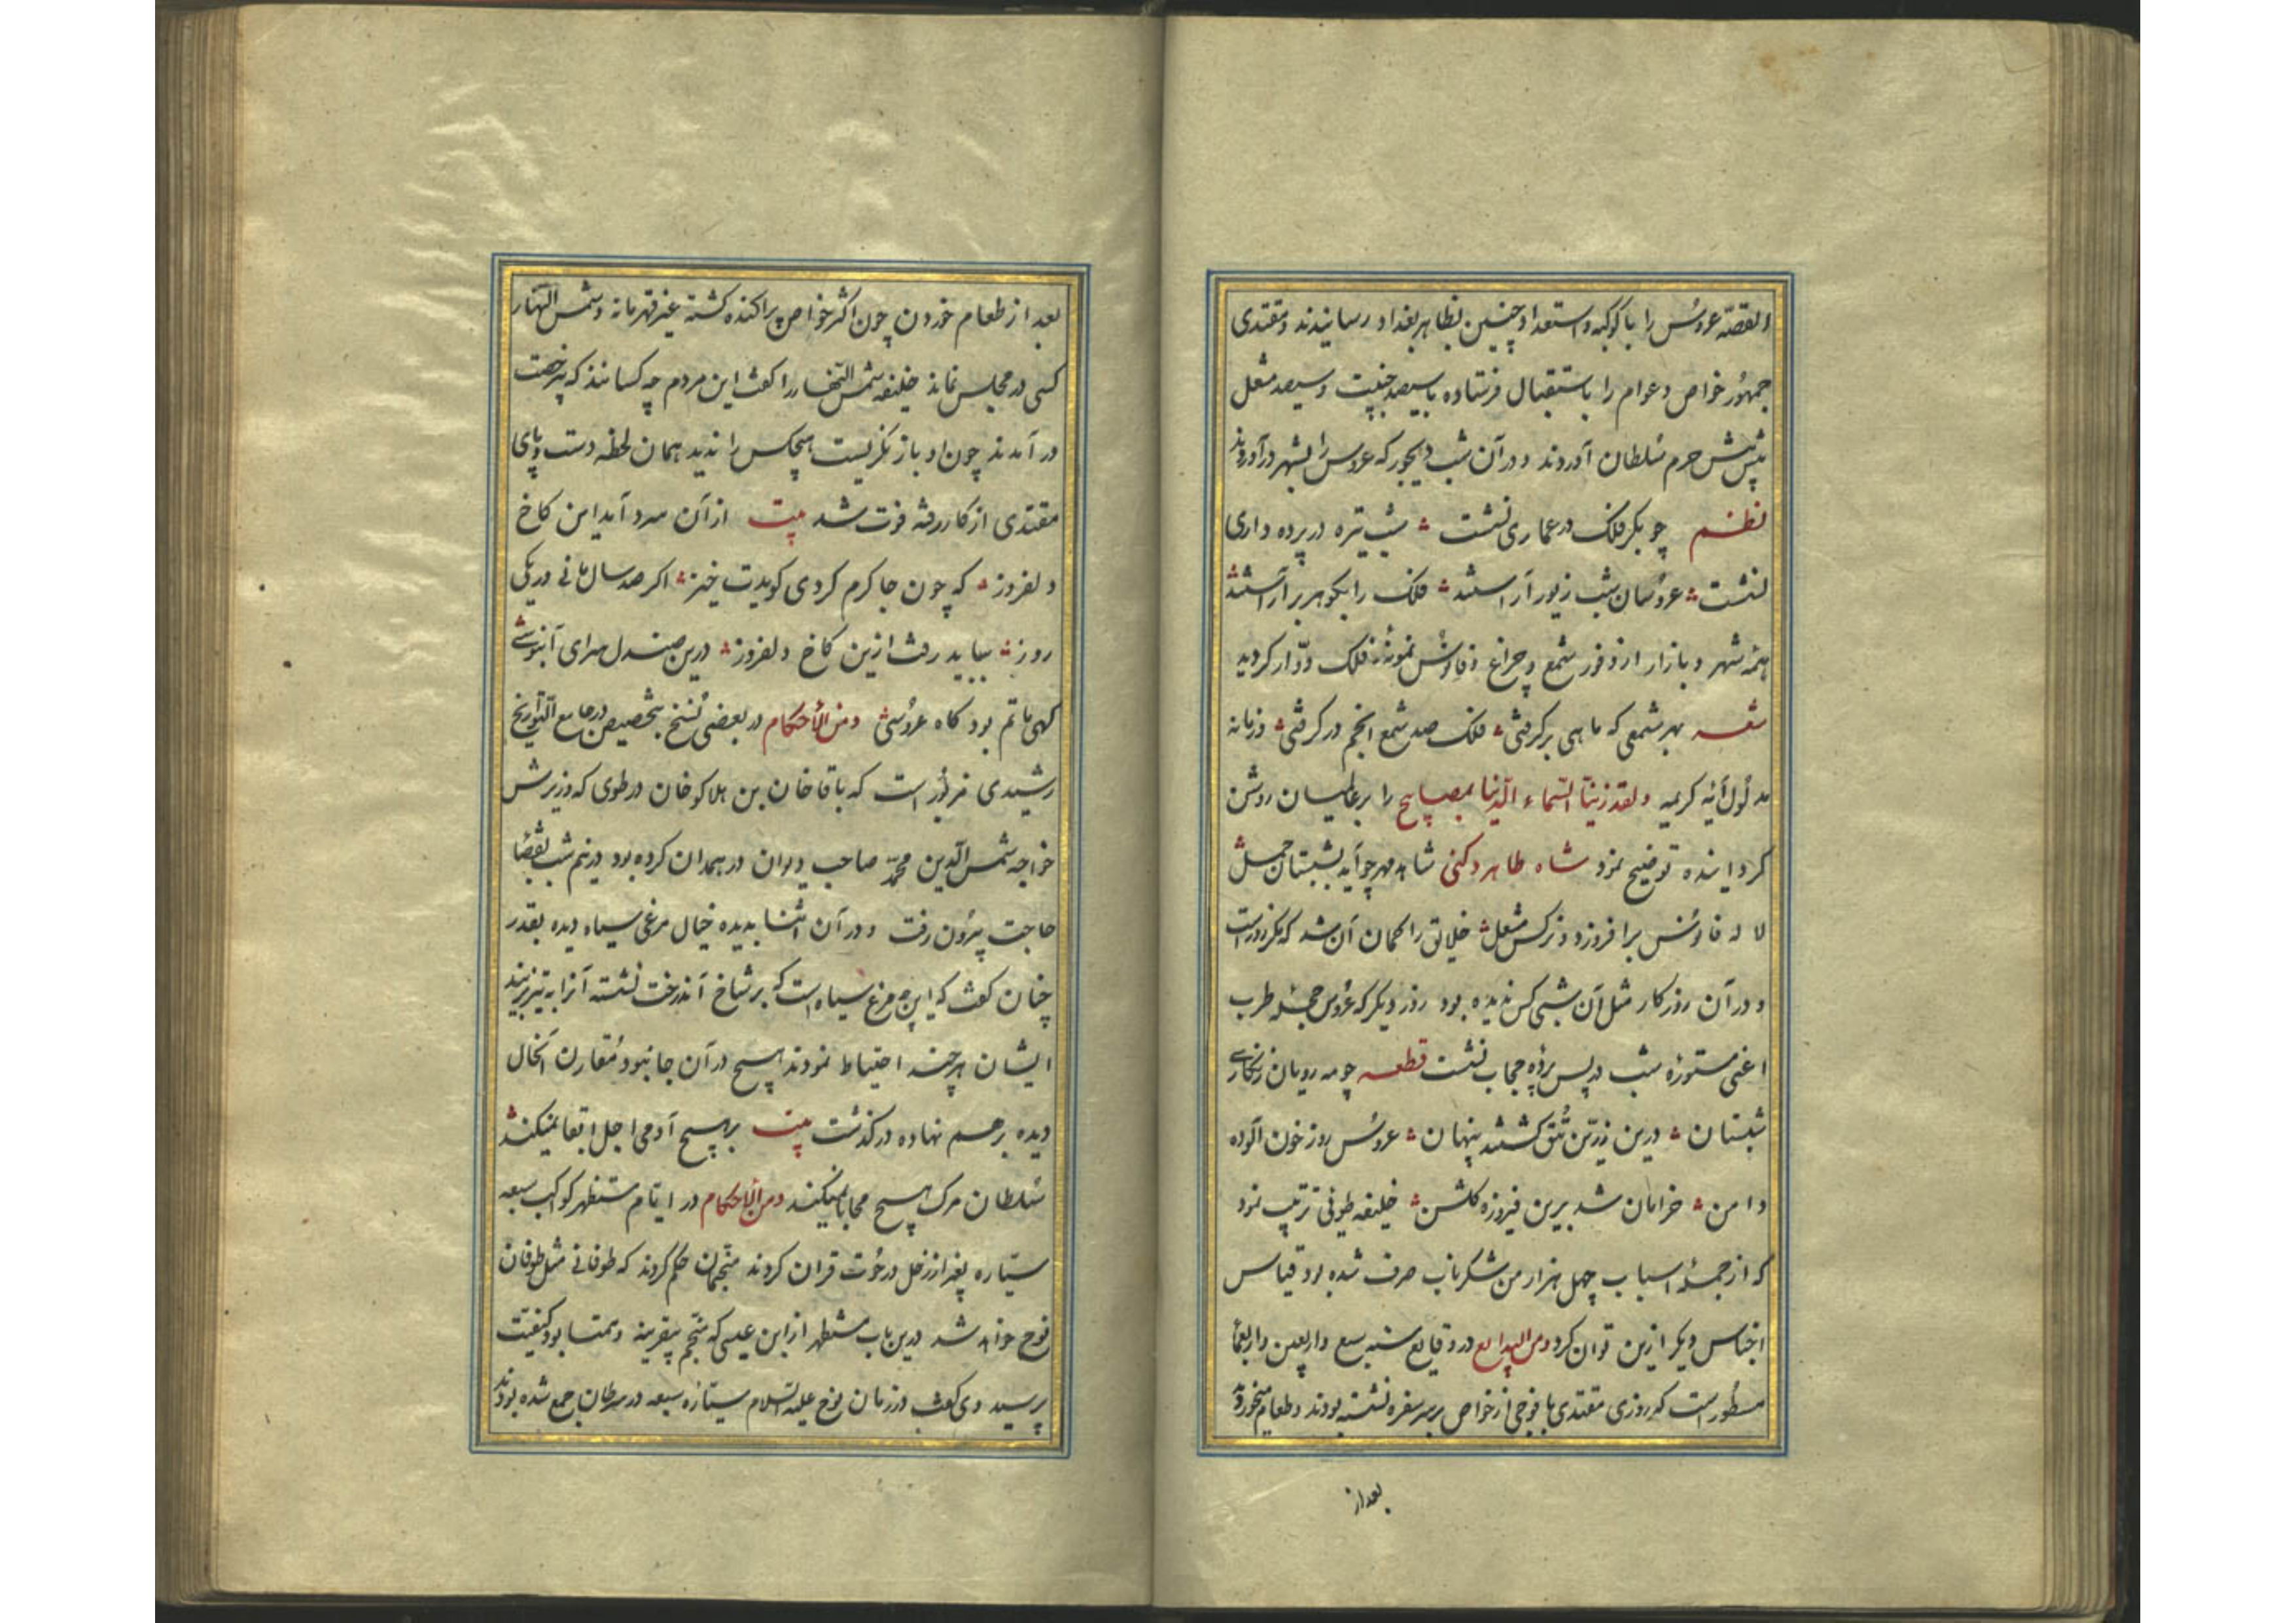 القصه عروس را با کوکبه و استعداد چنین بظاهر بغداد رسانیدند و مقتدی
جمهور خواص و عوام را باستقبال فرستاده با سیصد جنیبت و سیصد مشعل
پیش پیش حرم سلطان آوردند و در آن شب دیجور که عروس را بشهر درآوردند
نظم چو بکر فلک در عماری نشست شب تیره در پرده داری
نشست عروسان شب زیور آراستند فلک را بگوهر بر آراستند
همه شهر و بازار از وفور شمع و چراغ و فانوس نمونه فلک دوّار گردید
شعر بهر شمعی که ماهی برگرفتی فلک صد شمع انجم درگرفتی و زمانه
مدلول آیه کریمه ولقد زیّنّا السّماء الدّنیا بمصابیح را بر عالمیان روشن
گردانیده توضیح نمود شاه طاهر دکنی شاهد مهر چو آید بشبستان حمل
لاله فانوس برافروزد و نرگس مشعل خلایق را گمان آن شد که مگر روز است
و در آن روزگار مثل آن شبی کس ندیده بود روز دیگر که عروس حجله طرب
اعنی مستوره شب در پس پرده حجاب نشست قطعه چو مه رویان زنگاری
شبستان درین زرّین تتق گشتند پنهان عروس روز خون آلوده
دامن خرامان شد برین فیروزه گلشن خلیفه طوئی ترتیب نمود
که از جمله اسباب چهل هزار من شکر ناب صرف شده بود قیاس
اجناس دیگر ازین توان کرد ومن البدایع در وقایع سنه سبع واربعین واربعمأ
مسطور است که روزی مقتدی با فوجی از خواص بر سر سفره نشسته بودند و طعام میخورد
بعد از
بعد از طعام خوردن چون اکثر خواص پراکنده گشته غیر قهرمانه و شمس النهار
کسی در مجلس نماند خلیفه شمس النهار را گفت این مردم چه کسانند که بی رخصت
درآمدند چون او باز نگریست هیچکس را ندید همان لحظه دست و پای
مقتدی از کار رفته فوت شد بیت از آن سرد آمد این کاخ
دلفروز که چون جا گرم کردی گویدت خیز اگر صد سال مانی ور یکی
روز بباید رفت ازین کاخ دلفروز درین صندل سرای آبنوسی
گهی ماتم بود گاه عروسی ومن الأحکام در بعضی نسخ بتخصیص در جامع التواریخ
رشیدی مزبور است که باقاخان بن هلاکوخان در طوی که وزیرش
خواجه شمس الدین محمّد صاحب دیوان در همدان کرده بود در نیم شب بقضا
حاجت بیرون رفت و در آن اثنا بدیده خیال مرغی سیاه دیده بقدر
چنان گفت که این چه مرغ سیاه است که بر شاخ آندرخت نشسته آنرا به تیر بزنید
ایشان هر چند احتیاط نمودند هیچ در آن جا نبود مقارن الحال
دیده برهم نهاده درگذشت بیت بر هیچ آدمی اجل ابقا نمیکند
سلطان مرگ هیچ محابا نمیکند ومن الأحکام در ایّام مستظهر کواکب سبعه
سیّاره بغیر از زحل در حوت قران کردند منجّمان حکم کردند که طوفانی مثل طوفان
نوح خواهد شد درین باب مستظهر از ابن عیسی که منجّم بیقرینه و همتا بود کیفیت
پرسید وی گفت در زمان نوح علیه السلام سیّاره سبعه در سرطان جمع شده بودند